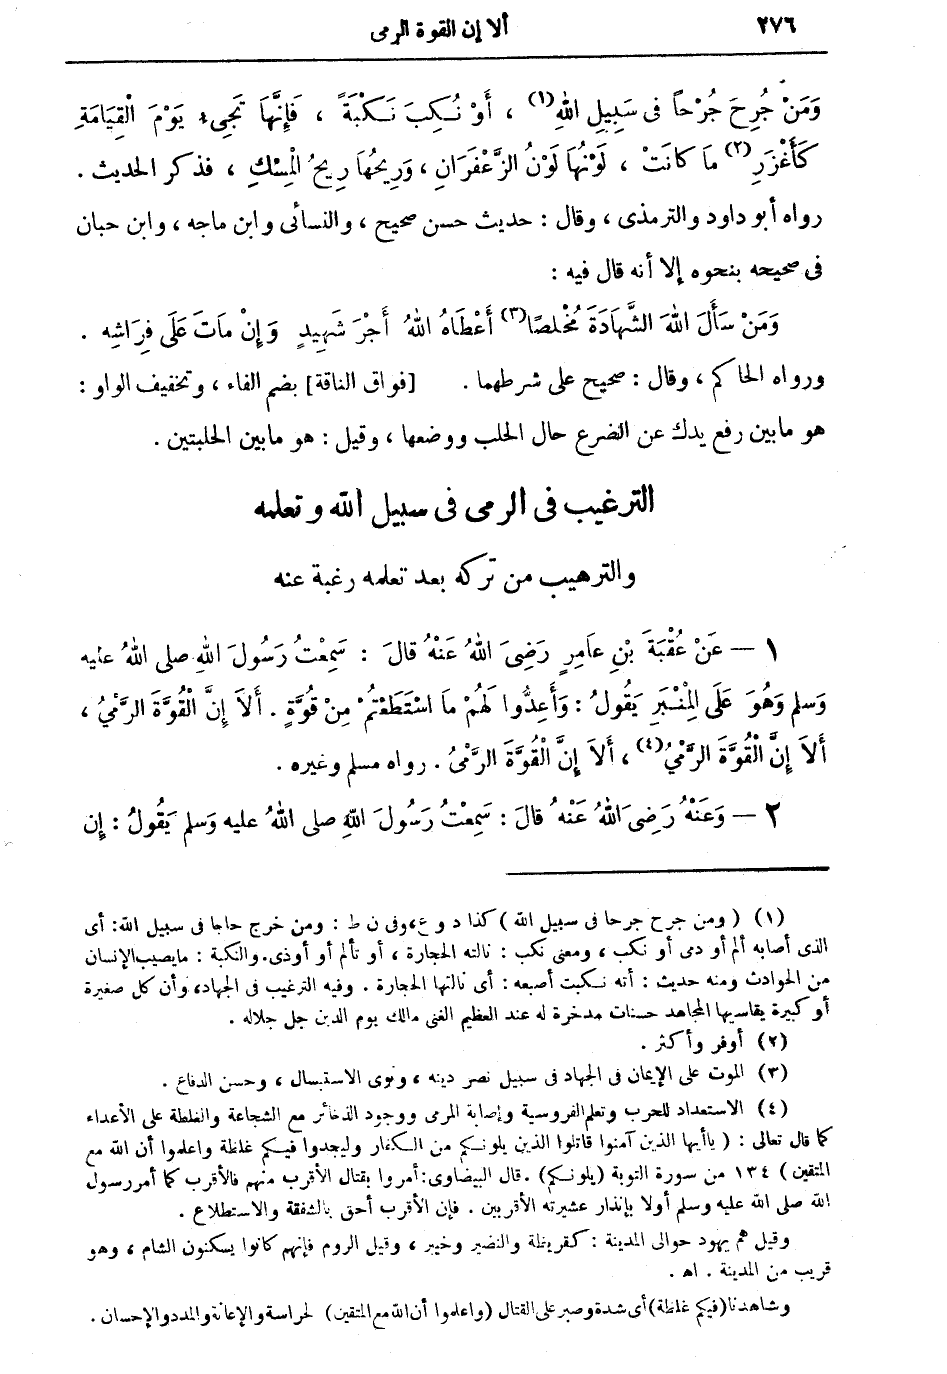 ٢٧٦
ألا إن القوة الرمى
وَمَنْ جُرِحَ جُرْحاً فى سَبِيلِ اللهِ(١) ، أَوْ نُكِبَ نَكْبَةً ، فَإِنَّهَا تَجِىءُ يَوْمَ الْقِيَامَةِ
كَأَغْزَرِ(٢) مَا كانَتْ ، لَوْنُهَا لَوْنُ الزَّعْفَرَانِ ، وَرِيحُهَا رِيحُ الْمِسْكِ ، فذكر الحديث .
رواه أبو داود والترمذى ، وقال : حديث حسن صحيح ، والنسائى وابن ماجه ، وابن حبان
فى صحيحه بنحوه إلا أنه قال فيه :
وَمَنْ سَأَلَ اللهَ الشَّهَادَةَ مُخْلصًا(٣) أَعْطَاهُ اللهُ أَجْرَ شَهِيدٍ وَإِنْ مَاتَ عَلَى فِرَاشِه .
ورواه الحاكم ، وقال : صحيح على شرطهما . [فواق الناقة] بضم الفاء ، وتخفيف الواو :
هو مابين رفع يدك عن الضرع حال الحلب ووضعها ، وقيل : هو مابين الحلبتين .
الترغيب فى الرمى فى سبيل الله وتعلمه
والترهيب من تركه بعد تعلمه رغبة عنه
١ — عَنْ عُقْبَةَ بْنِ عَامِرٍ رَضِىَ اللهُ عَنْهُ قالَ : سَمِعْتُ رَسُولَ اللهِ صلى اللهُ عليه
وَسلم وَهُوَ عَلَى المِنْبَرِ يَقُولُ : وَأَعِدُّوا لَهُمْ مَا اسْتَطَعْتُمْ مِنْ قُوَّةٍ . أَلَا إِنَّ الْقُوَّةَ الرَّمْيُ ،
أَلَا إِنَّ الْقُوَّةَ الرَّمْيُ(٤) ، أَلَا إِنَّ الْقُوَّةَ الرَّمْىُ . رواه مسلم وغيره .
٢ — وَعَنْهُ رَضِىَ اللهُ عَنْهُ قالَ : سَمِعْتُ رَسُولَ اللهِ صلى اللهُ عليه وَسلم يَقُولُ : إِن
(١) ( ومن جرح جرحا فى سبيل الله ) كذا د و ع، وفى ن ط : ومن خرج حاجا فى سبيل الله: أى
الذى أصابه ألم أو دمى أو نكب ، ومعنى نكب : نالته الحجارة ، أو تألم أو أوذى. والنكبة : مايصيب الإنسان
من الحوادث ومنه حديث : أنه نكبت أصبعه : أى نالتها الحجارة . وفيه الترغيب فى الجهاد، وأن كل صغيرة
أو كبيرة يقاسيها المجاهد حسنات مدخرة له عند العظيم الغنى مالك يوم الدين جل جلاله .
(٢) أوفر وأكثر .
(٣) الموت على الإيمان فى الجهاد فى سبيل نصر دينه ، ونوى الاستبسال ، وحسن الدفاع .
(٤) الاستعداد للحرب وتعلم الفروسية وإصابة المرمى ووجود الذخائر مع الشجاعة والغلظة على الأعداء
كما قال تعالى : ( ياأيها الذين آمنوا قاتلوا الذين يلونكم من الكفار وليجدوا فيكم غلظة واعلموا أن الله مع
المتقين ) ١٣٤ من سورة التوبة (يلونكم) . قال البيضاوى: أمروا بقتال الأقرب منهم فالأقرب كما أمر رسول
الله صلى الله عليه وسلم أولا بإنذار عشيرته الأقربين . فإن الأقرب أحق بالشفقة والاستطلاع .
وقيل هم يهود حوالى المدينة : كقريظة والنضير وخيبر ، وقيل الروم فإنهم كانوا يسكنون الشام ، وهو
قريب من المدينة . اه .
وشاهدنا (فيكم غلظة) أى شدة وصبر على القتال (واعلموا أن الله مع المتقين) لحراسة والإعانة والمدد والإحسان .